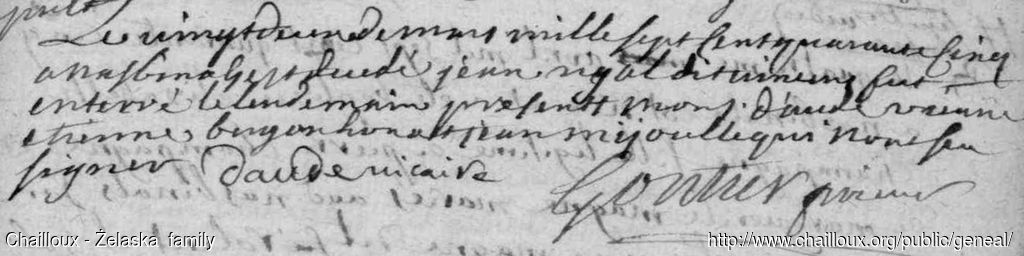 Le vingt deux de mars mille sept cent quarante cinq
a nasbinals est decedé jean rigal dit fut
enterré le lendemain presents mons. daude
etienne et jean mijoulle qui n'ont seu
signer Daude vicaire
Chailloux - Želaska family
http://www.chailloux.org/public/geneal/